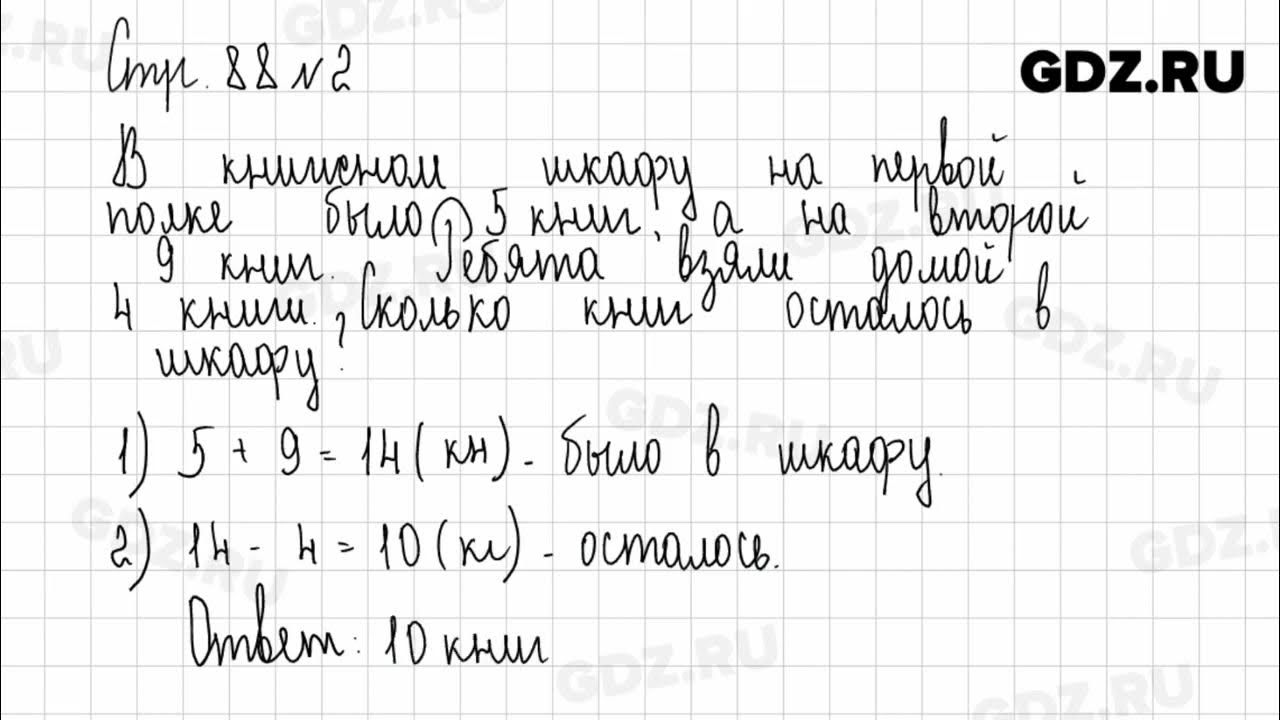 Стр. 88 №2
GDZ.RU
В книжном шкафу на первой
полке было 5 книг, а на второй
9 книг. Ребята взяли домой
4 книги. Сколько книг осталось в
шкафу?
1) 5 + 9 = 14 (кн) - было в шкафу.
2) 14 - 4 = 10 (кг) - осталось.
Ответ: 10 книг